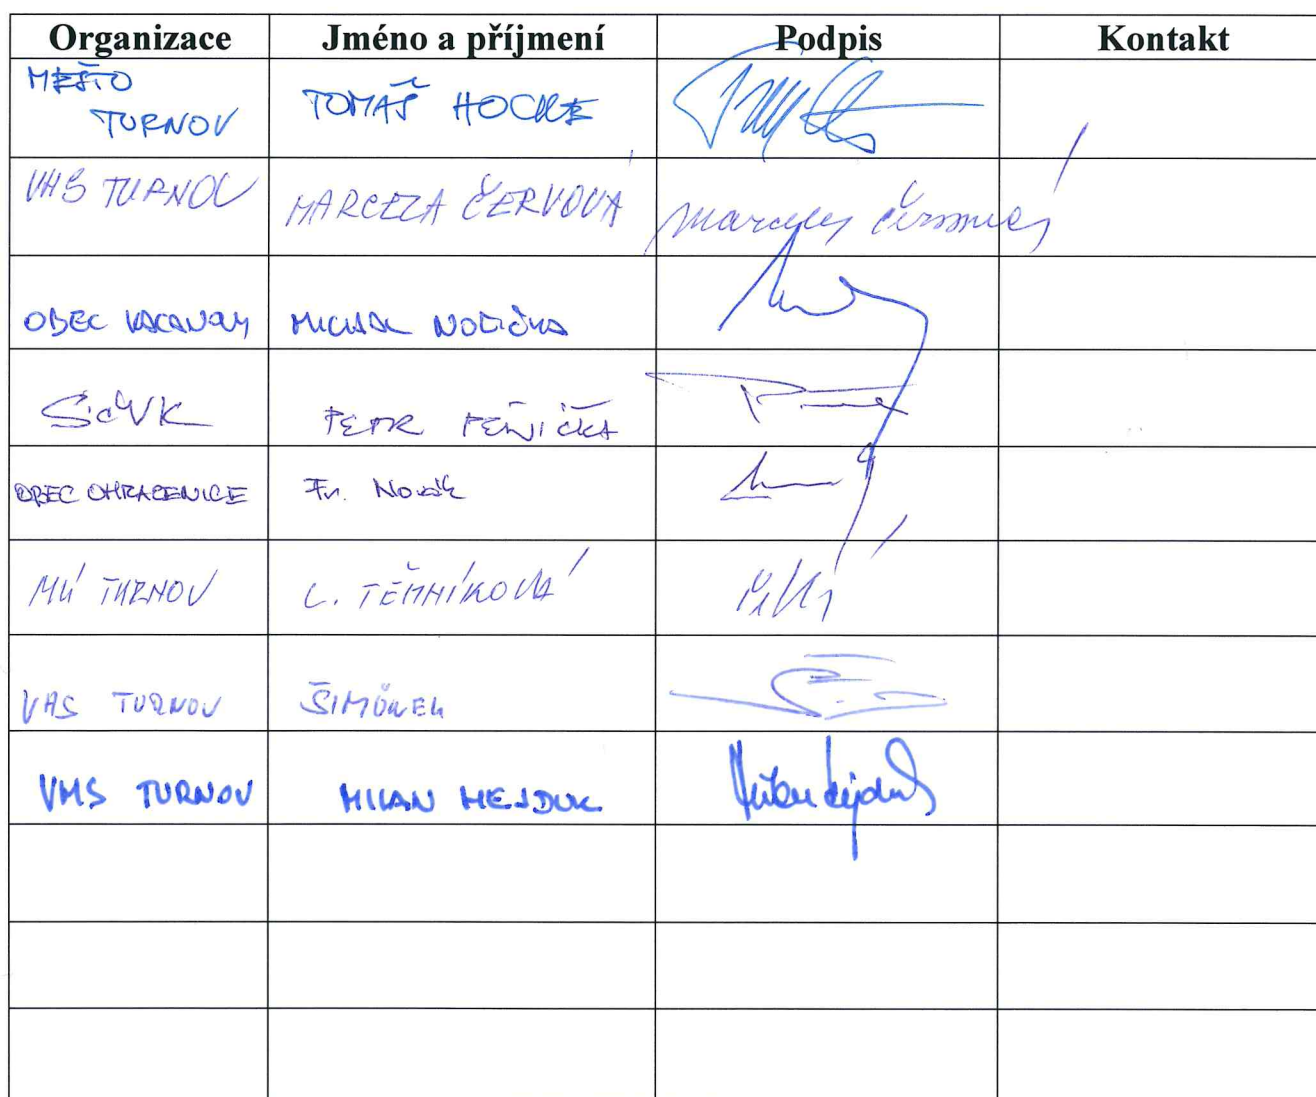 Organizace Jméno a příjmení Podpis Kontakt
MĚSTO
TURNOV TOMÁŠ HOCKE
VHS TURNOV MARCELA ČERVOVÁ Marcela Červová
OBEC MICHAL
SčVK PETR
OBEC OHRAZENICE Fr. Novák
MÚ TURNOV L. TĚMNÍKOVÁ
VHS TURNOV ŠIMŮNEK
VHS TURNOV MILAN HEJDUK Milan Hejduk